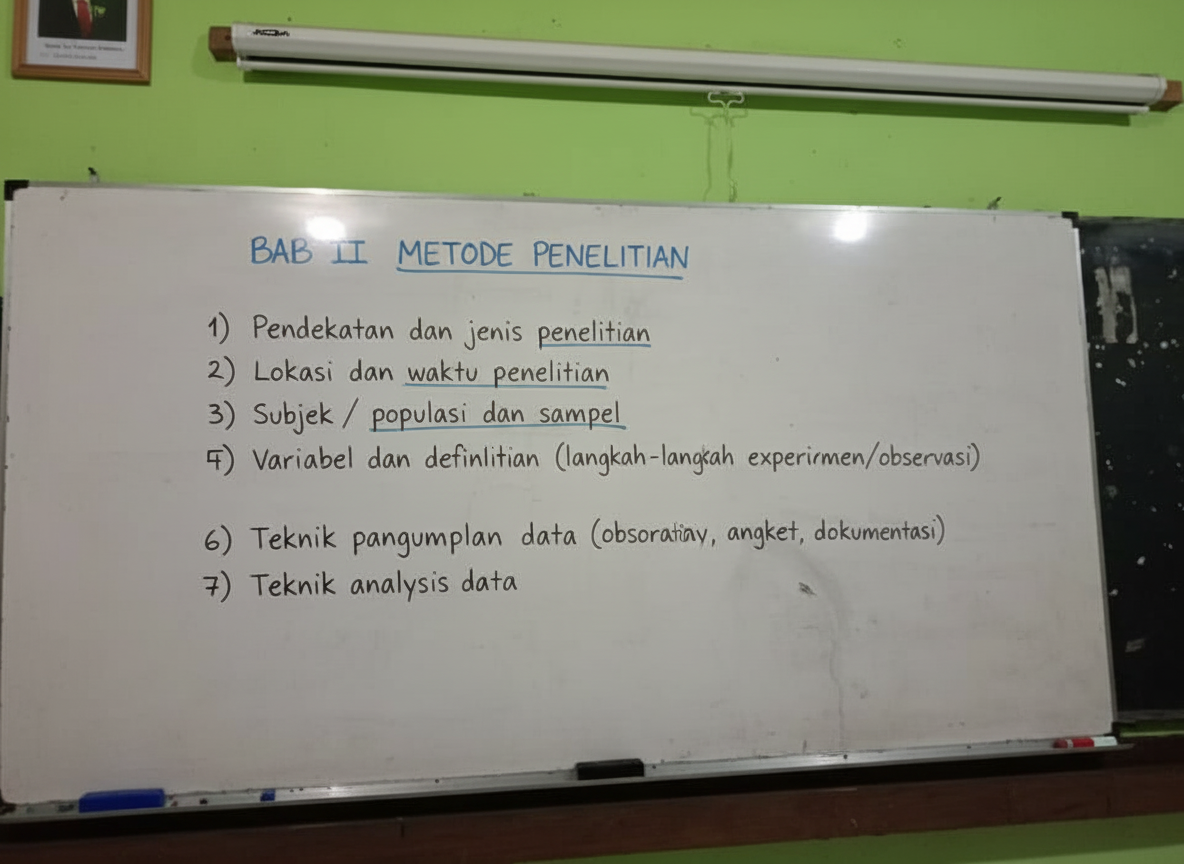 BAB II METODE PENELITIAN
1) Pendekatan dan jenis penelitian
2) Lokasi dan waktu penelitian
3) Subjek / populasi dan sampel
4) Variabel dan definlitian (langkah-langkah experirmen/observasi)
6) Teknik pangumplan data (obsoratiny, angket, dokumentasi)
7) Teknik analysis data